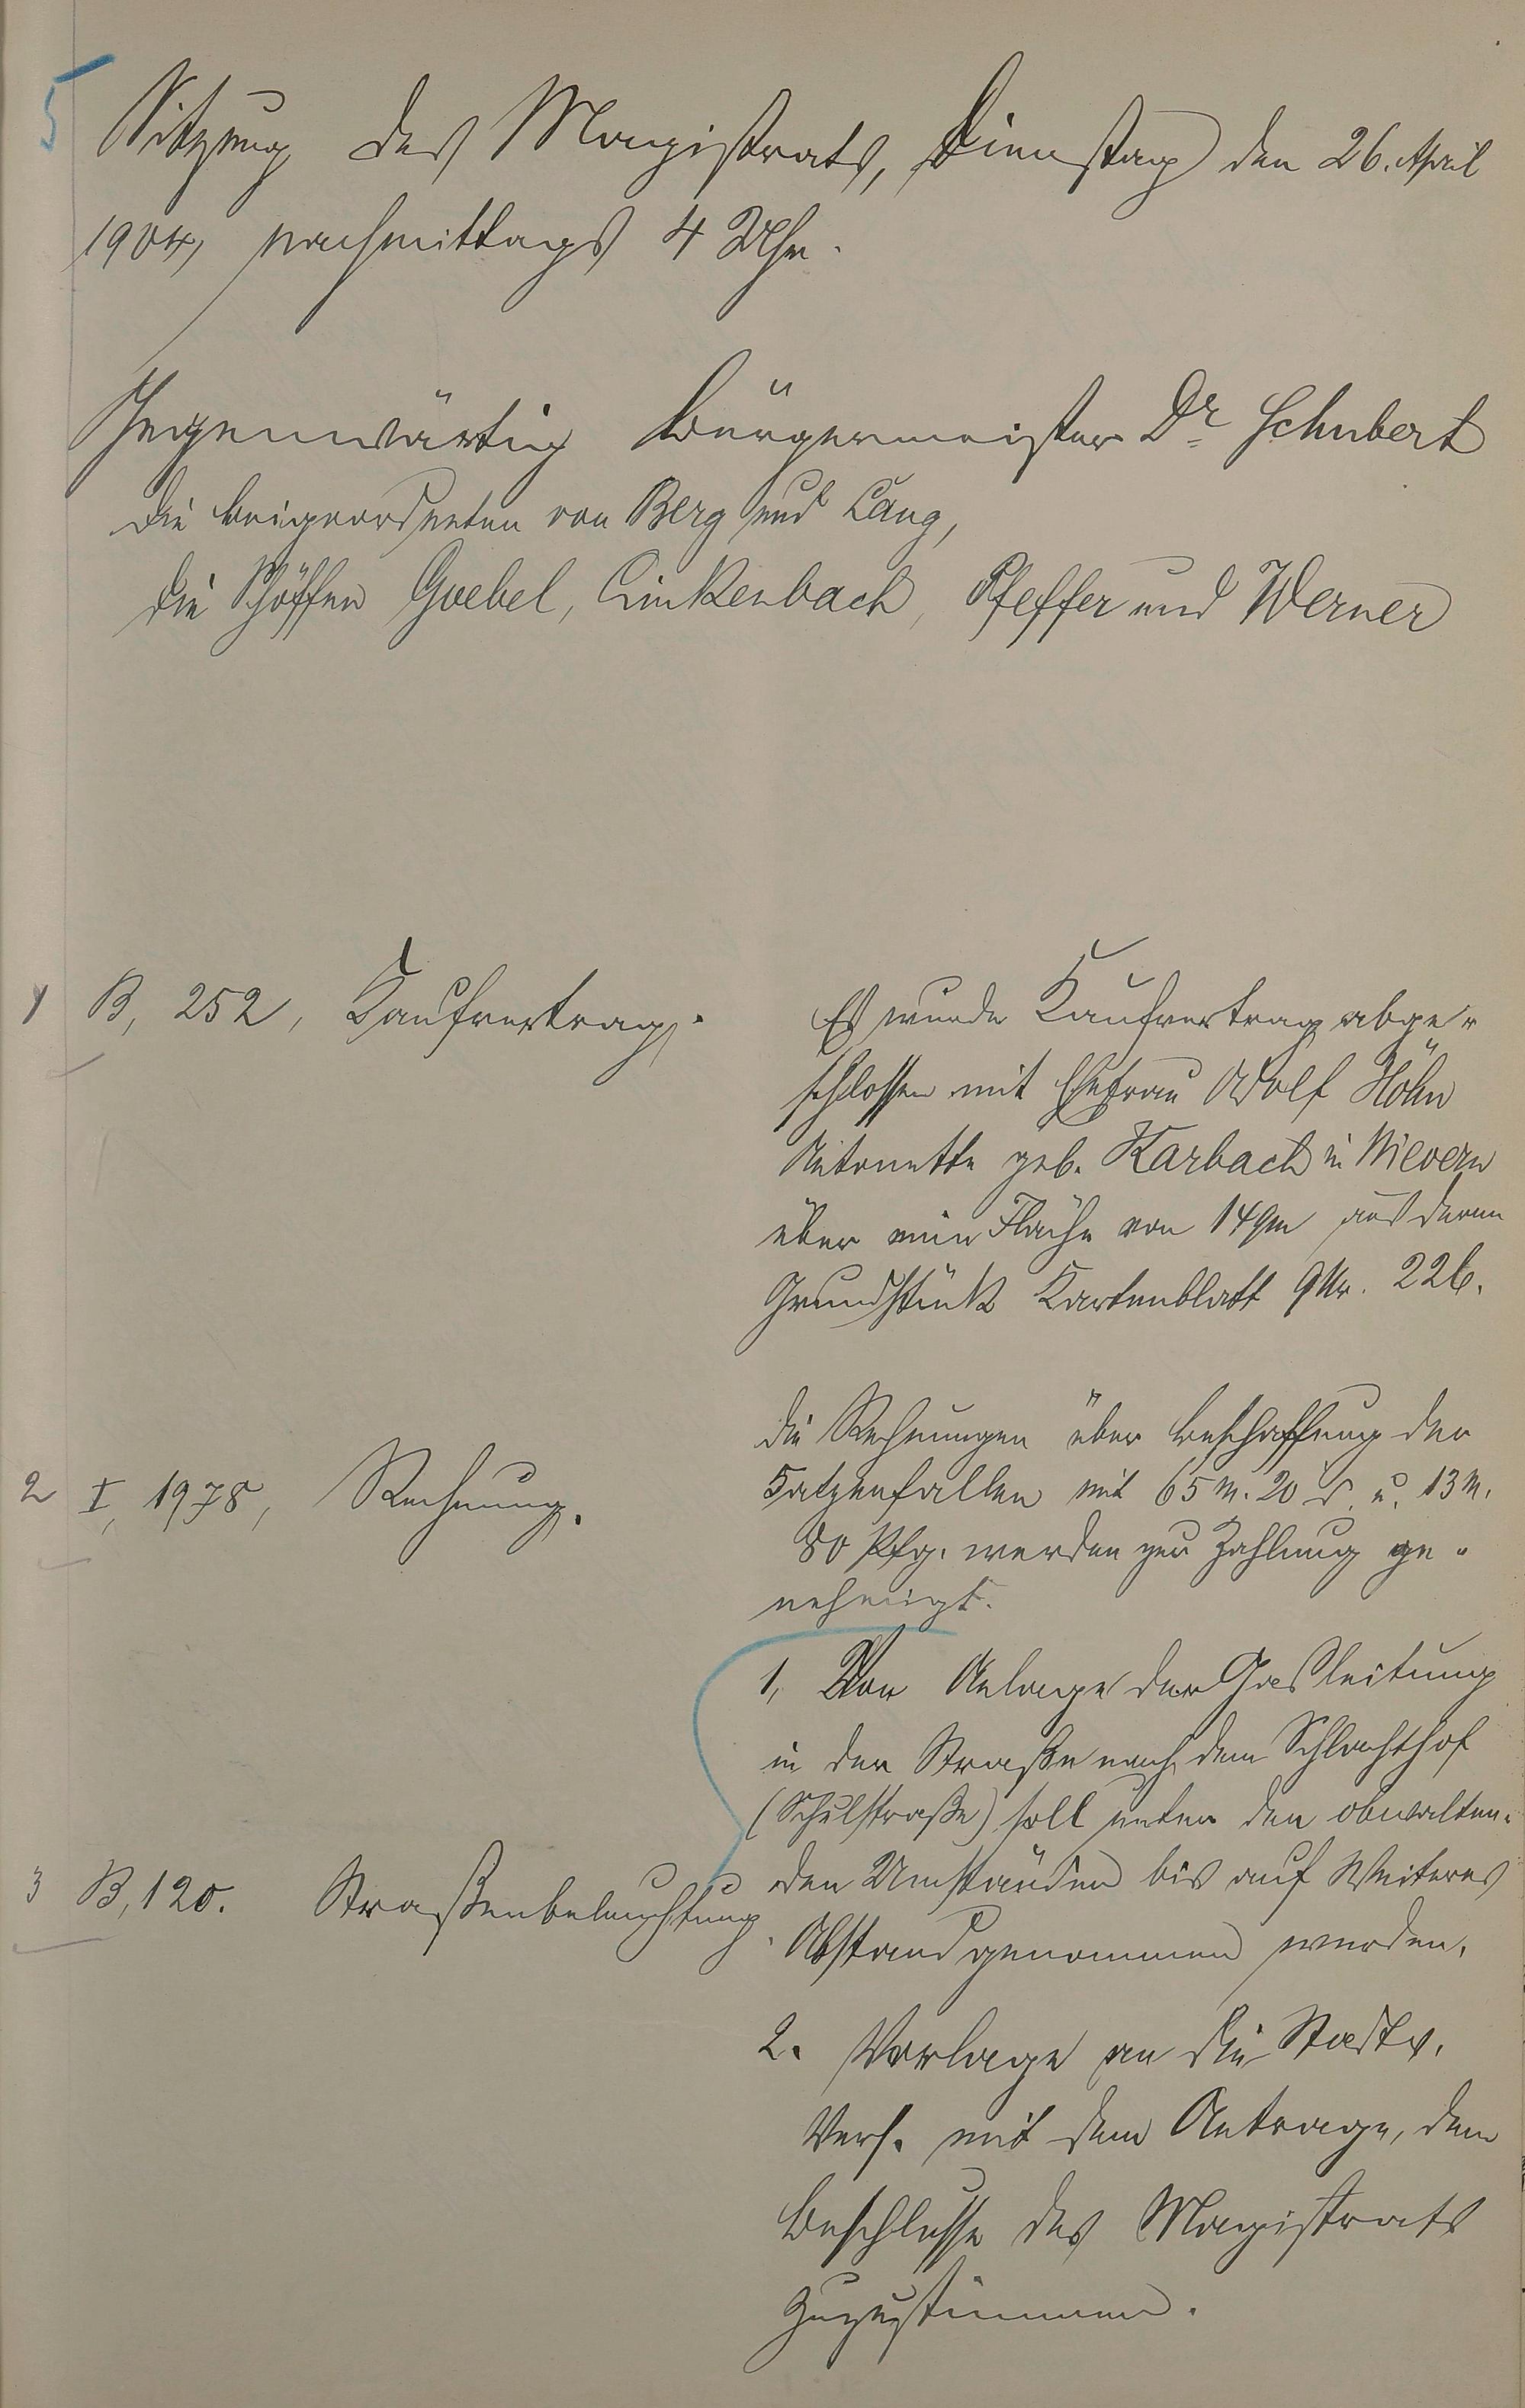 5
Sitzung des Magistrats, Dienstag den 26. April
1904, nachmittags 4 Uhr.
Gegenwärtig Bürgermeister Dr Schubert
die Beigeordneten von Berg und Lang,
die Schöffen Goebel, Linkenbach, Pfeffer und Werner
1 B, 252, Kaufvertrag.
Es wurde Kaufvertrag abge-
schlossen mit Ehefrau Adolf Höhn
Antonette geb. Karbach in Nievern
über eine Fläche von 14 qm aus deren
Grundstück Kartenblatt 9 Nr. 226.
2 I, 1978, Rechnung.
Die Rechnungen über Beschaffung der
mit 65 M. 20 u. 13 M.
80 Pfg. werden zur Zahlung ge-
nehmigt.
3 B, 120. Straßenbeleuchtung.
1, Von Anlage der Gasleitung
in der Straße nach dem Schlachthof
(Schulstraße) soll unter den obwalten-
den Umständen bis auf Weiteres
Abstand genommen werden.
2. Vorlage an die Stadtv.
Vers. mit dem Antrage, dem
Beschlusse des Magistrats
zuzustimmen.